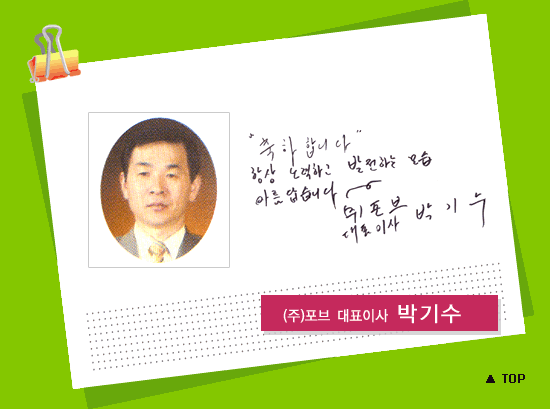 "축하합니다"
항상 노력하고 발전하는 모습
아름답습니다
(주)포브
대표이사 박기수
(주)포브 대표이사 박기수
▲ TOP